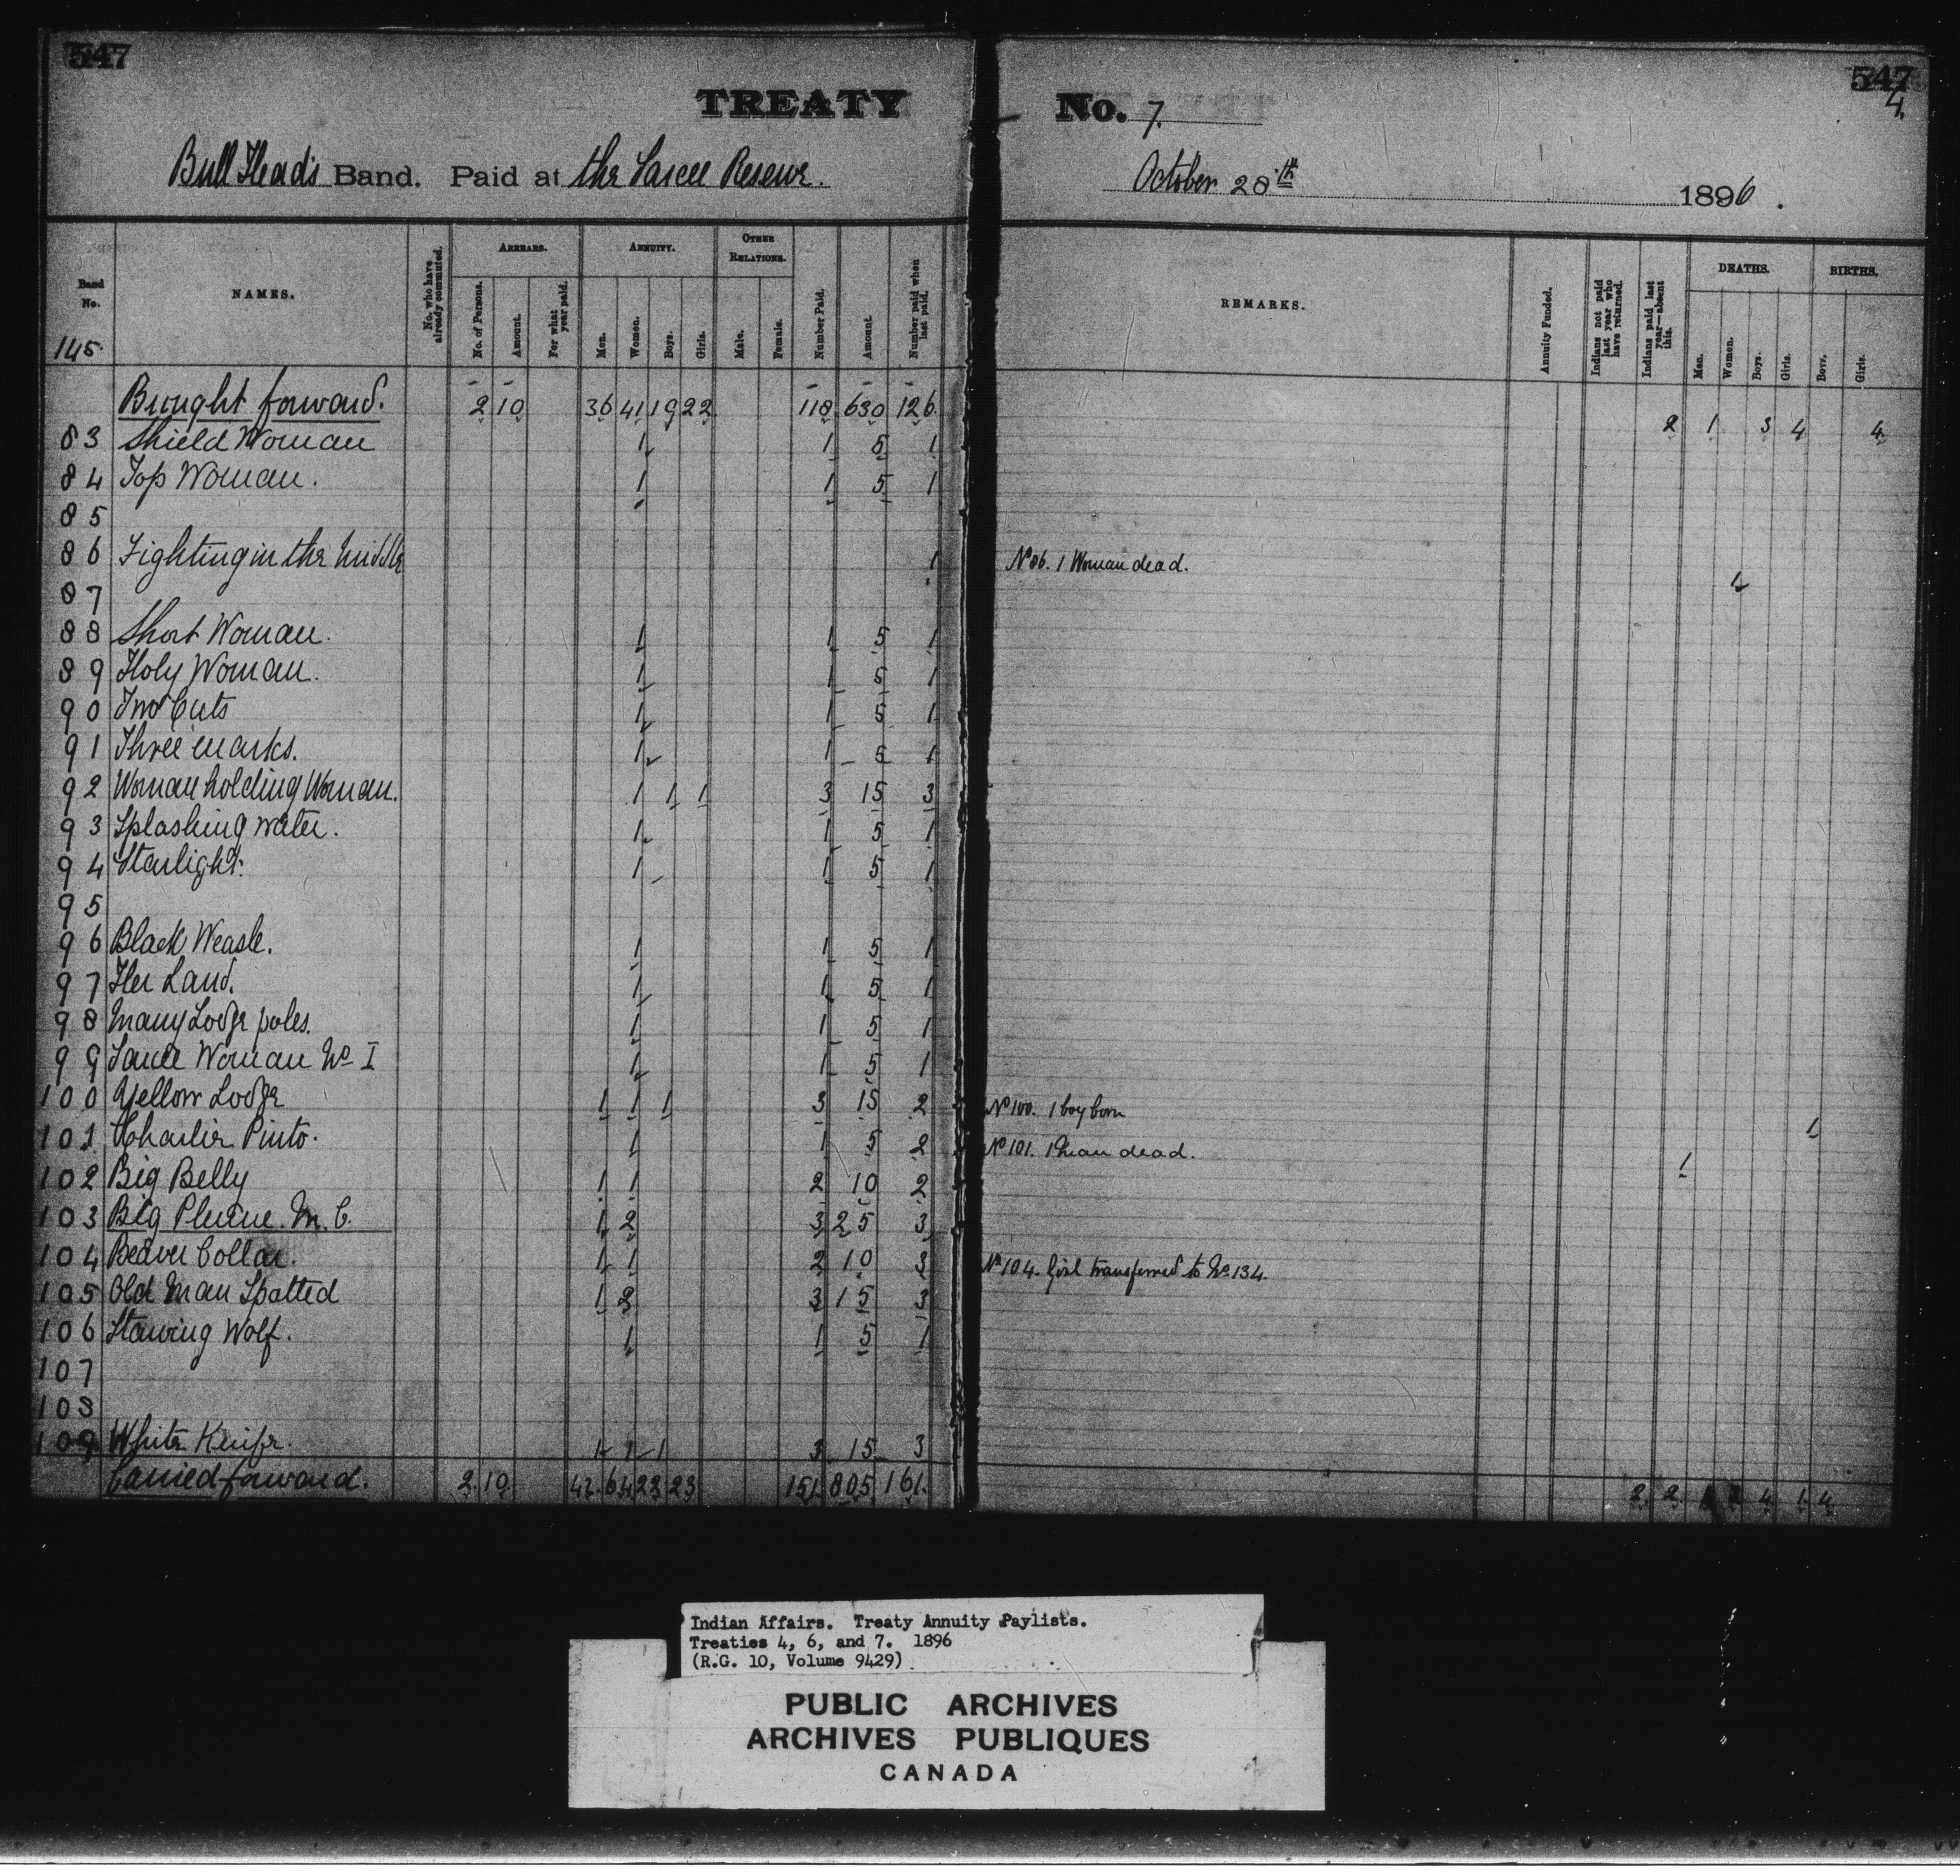 547
547
4.
TREATY No. 7.
Bull Head's Band. Paid at the Sarcee Reserve.
October 28th 1896.
Band No. NAMES. No. who have already commuted. ARREARS. No. of Persons. Amount. For what year paid. ANNUITY. Men. Women. Boys. Girls. OTHER RELATIONS. Male. Female. Number Paid. Amount. Number paid when last paid. REMARKS. Annuity Funded. Indians not paid last year who have returned. Indians paid last year—absent this. DEATHS. Men. Women. Boys. Girls. BIRTHS. Boys. Girls.
145.
Brought forward. 2 10 36 41 19 22 118 630 126 2 1 3 4 4
83 Shield Woman 1 1 5 1
84 Top Woman. 1 1 5 1
85
86 Fighting in the Middle 1 No 86. 1 Woman dead. 1
87
88 Short Woman. 1 1 5 1
89 Holy Woman. 1 1 5 1
90 Two Cuts 1 1 5 1
91 Three marks. 1 1 5 1
92 Woman holding Woman. 1 1 1 3 15 3
93 Splashing water. 1 1 5 1
94 Starlight. 1 1 5 1
95
96 Black Weasle. 1 1 5 1
97 Her Land. 1 1 5 1
98 Many Lodge poles. 1 1 5 1
99 Sarcee Woman No I 1 1 5 1
100 Yellow Lodge 1 1 1 3 15 2 No 100. 1 boy born 1
101 Charlie Pinto. 1 1 5 2 No 101. 1 Man dead. 1
102 Big Belly 1 1 2 10 2
103 Big Plume. M.C. 1 2 3 25 3
104 Beaver Collar. 1 1 2 10 3 No 104. Girl transferred to No 134.
105 Old Man Spotted 1 2 3 15 3
106 Starving Wolf. 1 1 5 1
107
108
109 White Knife. 1 1 1 3 15 3
Carried forward. 2 10 42 64 22 23 151 805 161 2 2 4 1 4
Indian Affairs. Treaty Annuity Paylists.
Treaties 4, 6, and 7. 1896
(R.G. 10, Volume 9429)
PUBLIC ARCHIVES
ARCHIVES PUBLIQUES
CANADA